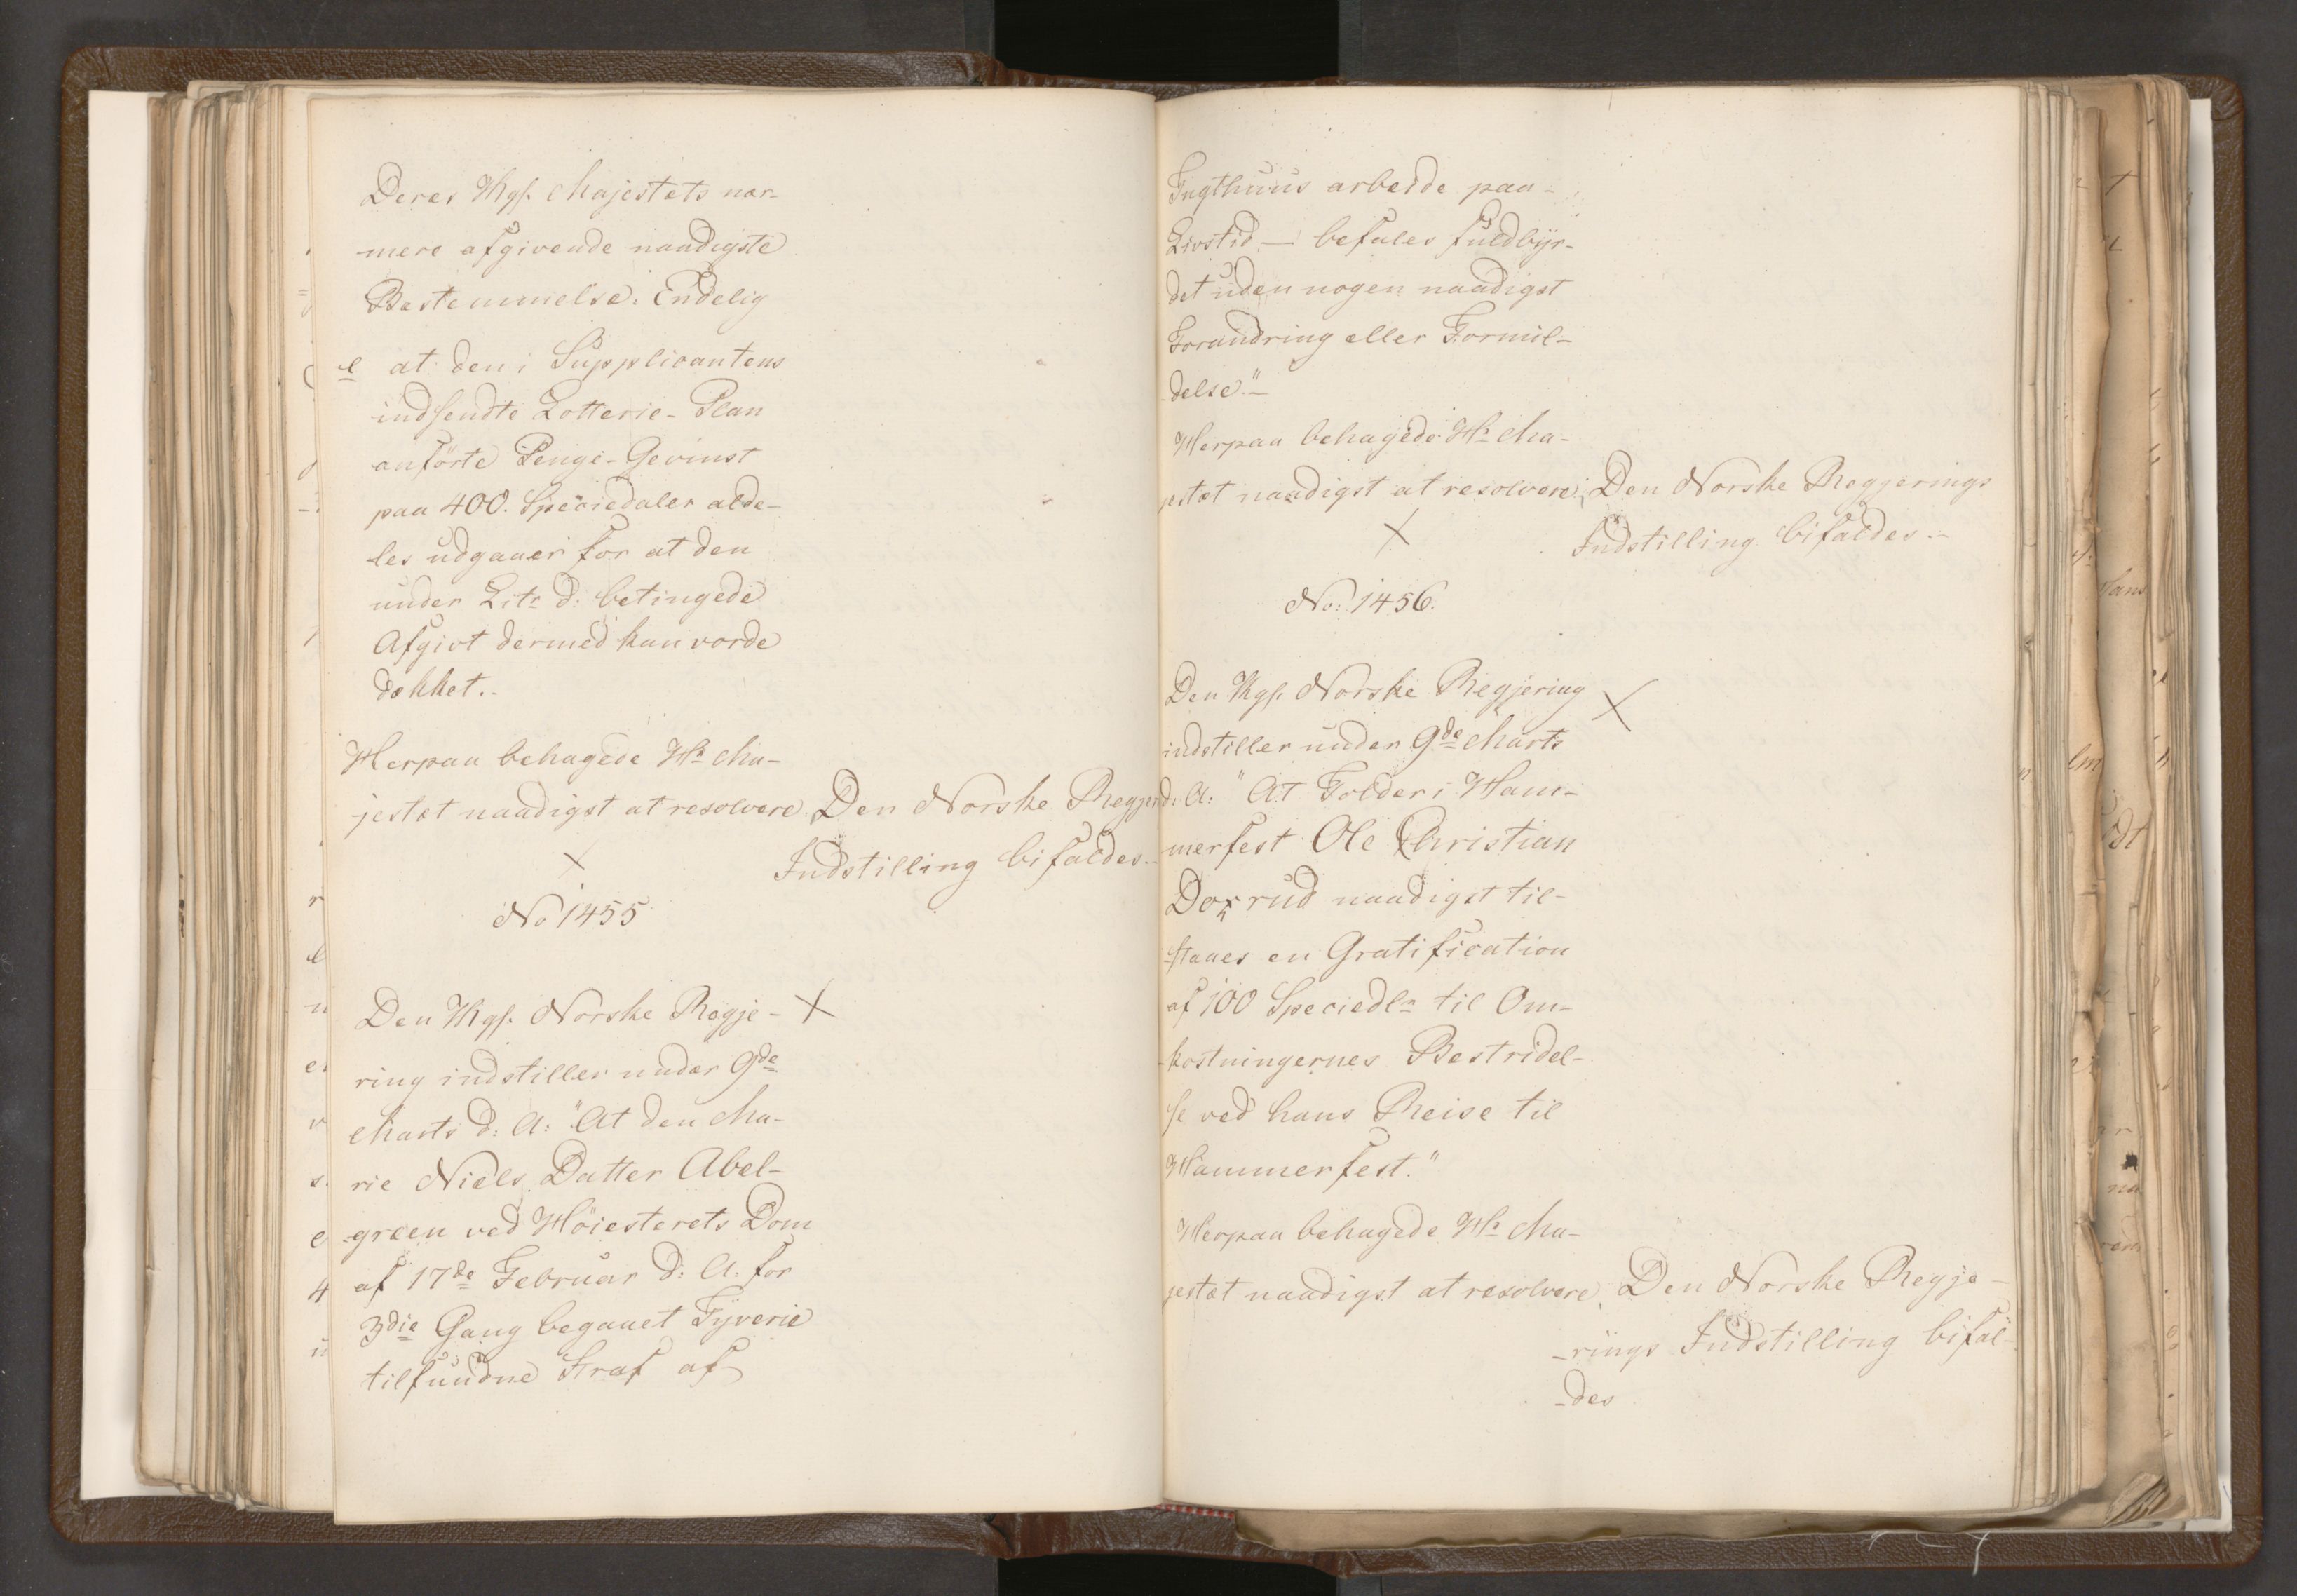 Deres Kgl. Majestæts nær-
mere afgivende naadigste
Bestemmelse. Endelig
e at den i Supplicantens
indsendte Lotterie-Plan
anförte Penge-Gevinst
paa 400. Speciedaler alde-
les udgaaer for at den
under Litr d. betingede
Afgivt dermed kan vorde
dækket.-
Herpaa behagede Hs Ma-
jestæt naadigst at resolvere Den Norske Regjer
Indstilling bifaldes.-
No 1455
Den Kgl. Norske Regje-
ring indstiller under 9de
Marts d: A: "At den Ma-
rie Niels Datter Abel-
green ved Höiesterets Dom
af 17de Februar d: A. for
3die Gang begaaet Tyverie
tilfundne Straf af
Tugthuus arbeide paa-
Livstid - befales fuldbyr-
det uden nogen naadigst
Forandring eller Formil-
delse."-
Herpaa behagede Hs Ma-
jestæt naadigst at resolvere: Den Norske Regjerings
Indstilling bifaldes.-
No: 1456.
Den Kgl. Norske Regjering
indstiller under 9de Marts
d: A: "At Tolder i Ham-
merfest Ole Christian
Doxrud naadigst til-
staaes en Gratification
af 100 Speciedlr til Om-
-kostningernes Bestridel-
se ved hans Reise til
Hammerfest."
Herpaa behagede Hs Ma-
jestæt naadigst at resolvere, Den Norske Regje-
-rings Indstilling bifal-
-des